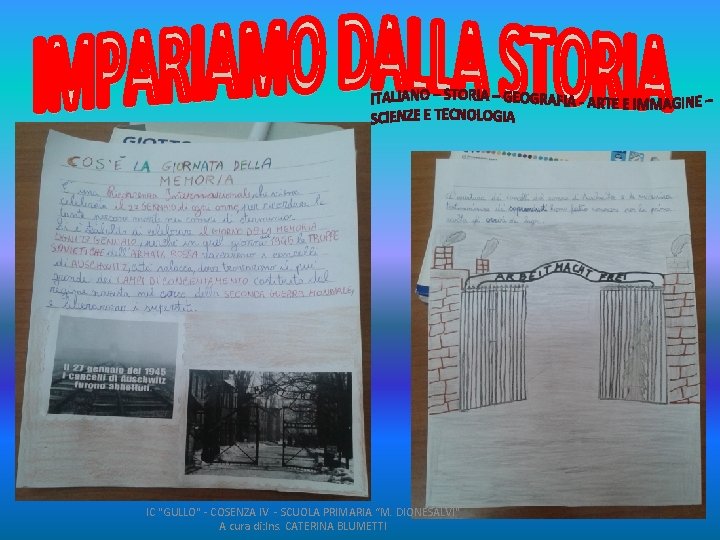 IMPARIAMO DALLA STORIA
ITALIANO – STORIA – GEOGRAFIA - ARTE E IMMAGINE –
SCIENZE E TECNOLOGIA
GIOTTO
COS'È LA GIORNATA DELLA
MEMORIA
È una Ricorrenza Internazionale, che viene
celebrata il 27 GENNAIO di ogni anno, per ricordare le
tante persone morte nei campi di sterminio.
Si è stabilito di celebrare il GIORNO DELLA MEMORIA
perché in quel giorno 1945 le TRUPPE
SOVIETICHE dell'ARMATA ROSSA i cancelli
di AUSCHWITZ, città polacca, dove troviamo il più
grande dei CAMPI DI CONCENTRAMENTO costruito dal
regime nazista nel corso della SECONDA GUERRA MONDIALE,
e liberarono i superstiti.
Il 27 gennaio del 1945
i cancelli di Auschwitz
furono abbattuti.
L'apertura dei cancelli del campo di Auschwitz e la
dei sopravvissuti per la prima
volta gli orrori dei lager.
ARBEIT MACHT FREI
IC "GULLO" - COSENZA IV - SCUOLA PRIMARIA "M. DIONESALVI"
A cura di:Ins. CATERINA BLUMETTI